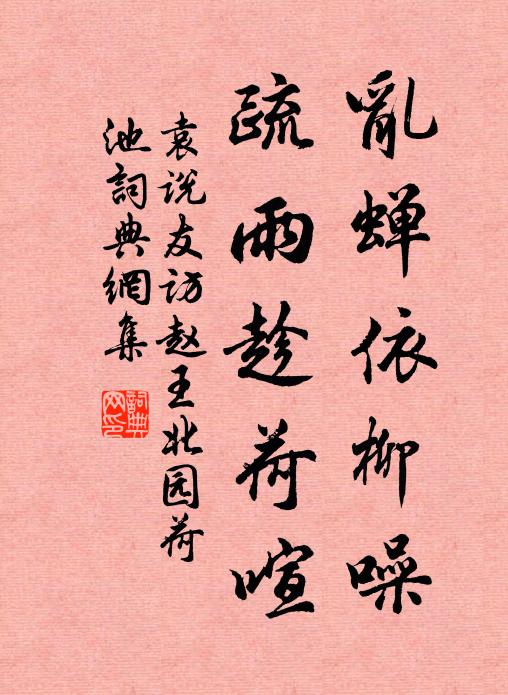 亂蟬依柳噪
疏雨趁荷喧
袁说友访赵王北园荷
池詞典網集
詞典
网印